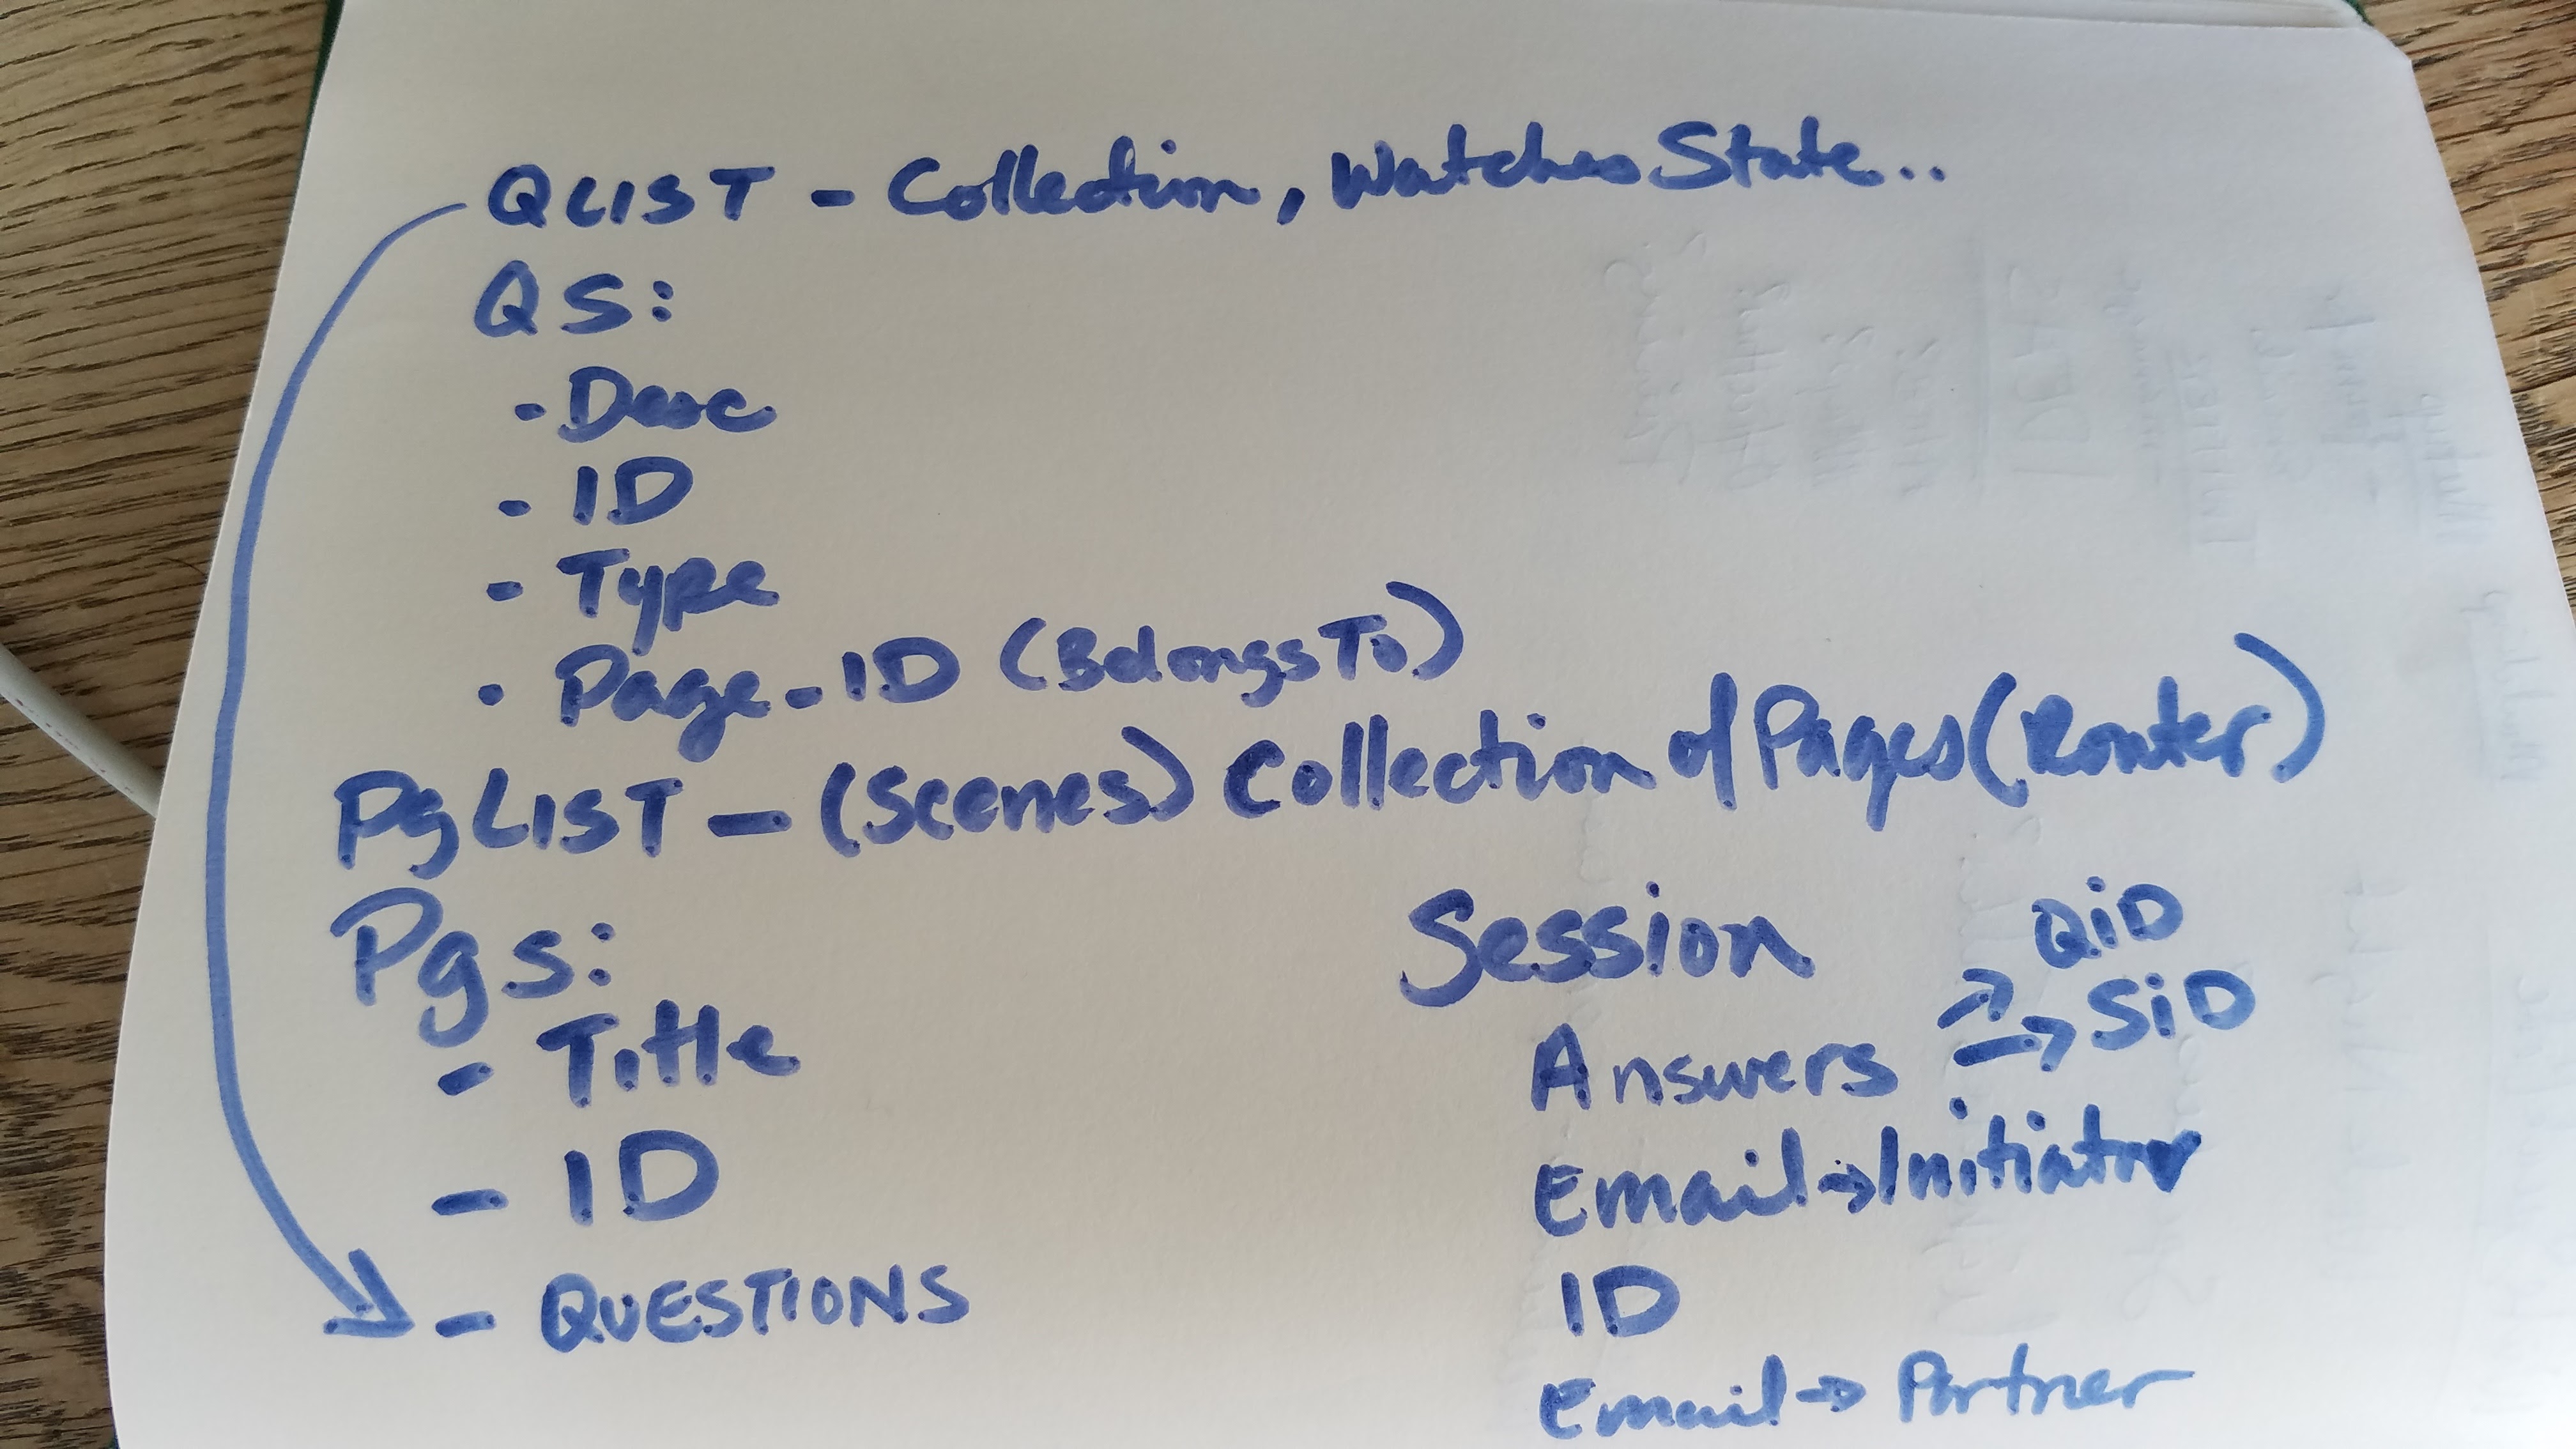 QLIST - Collection, Watches State..
QS:
- Desc
- ID
- Type
- Page-ID (Belongs To)
PgLIST - (Scenes) Collection of Pages (Router)
Pgs:
- Title
- ID
- QUESTIONS
Session
Answers → QiD
→ SiD
Email → Initiator
ID
Email → Partner